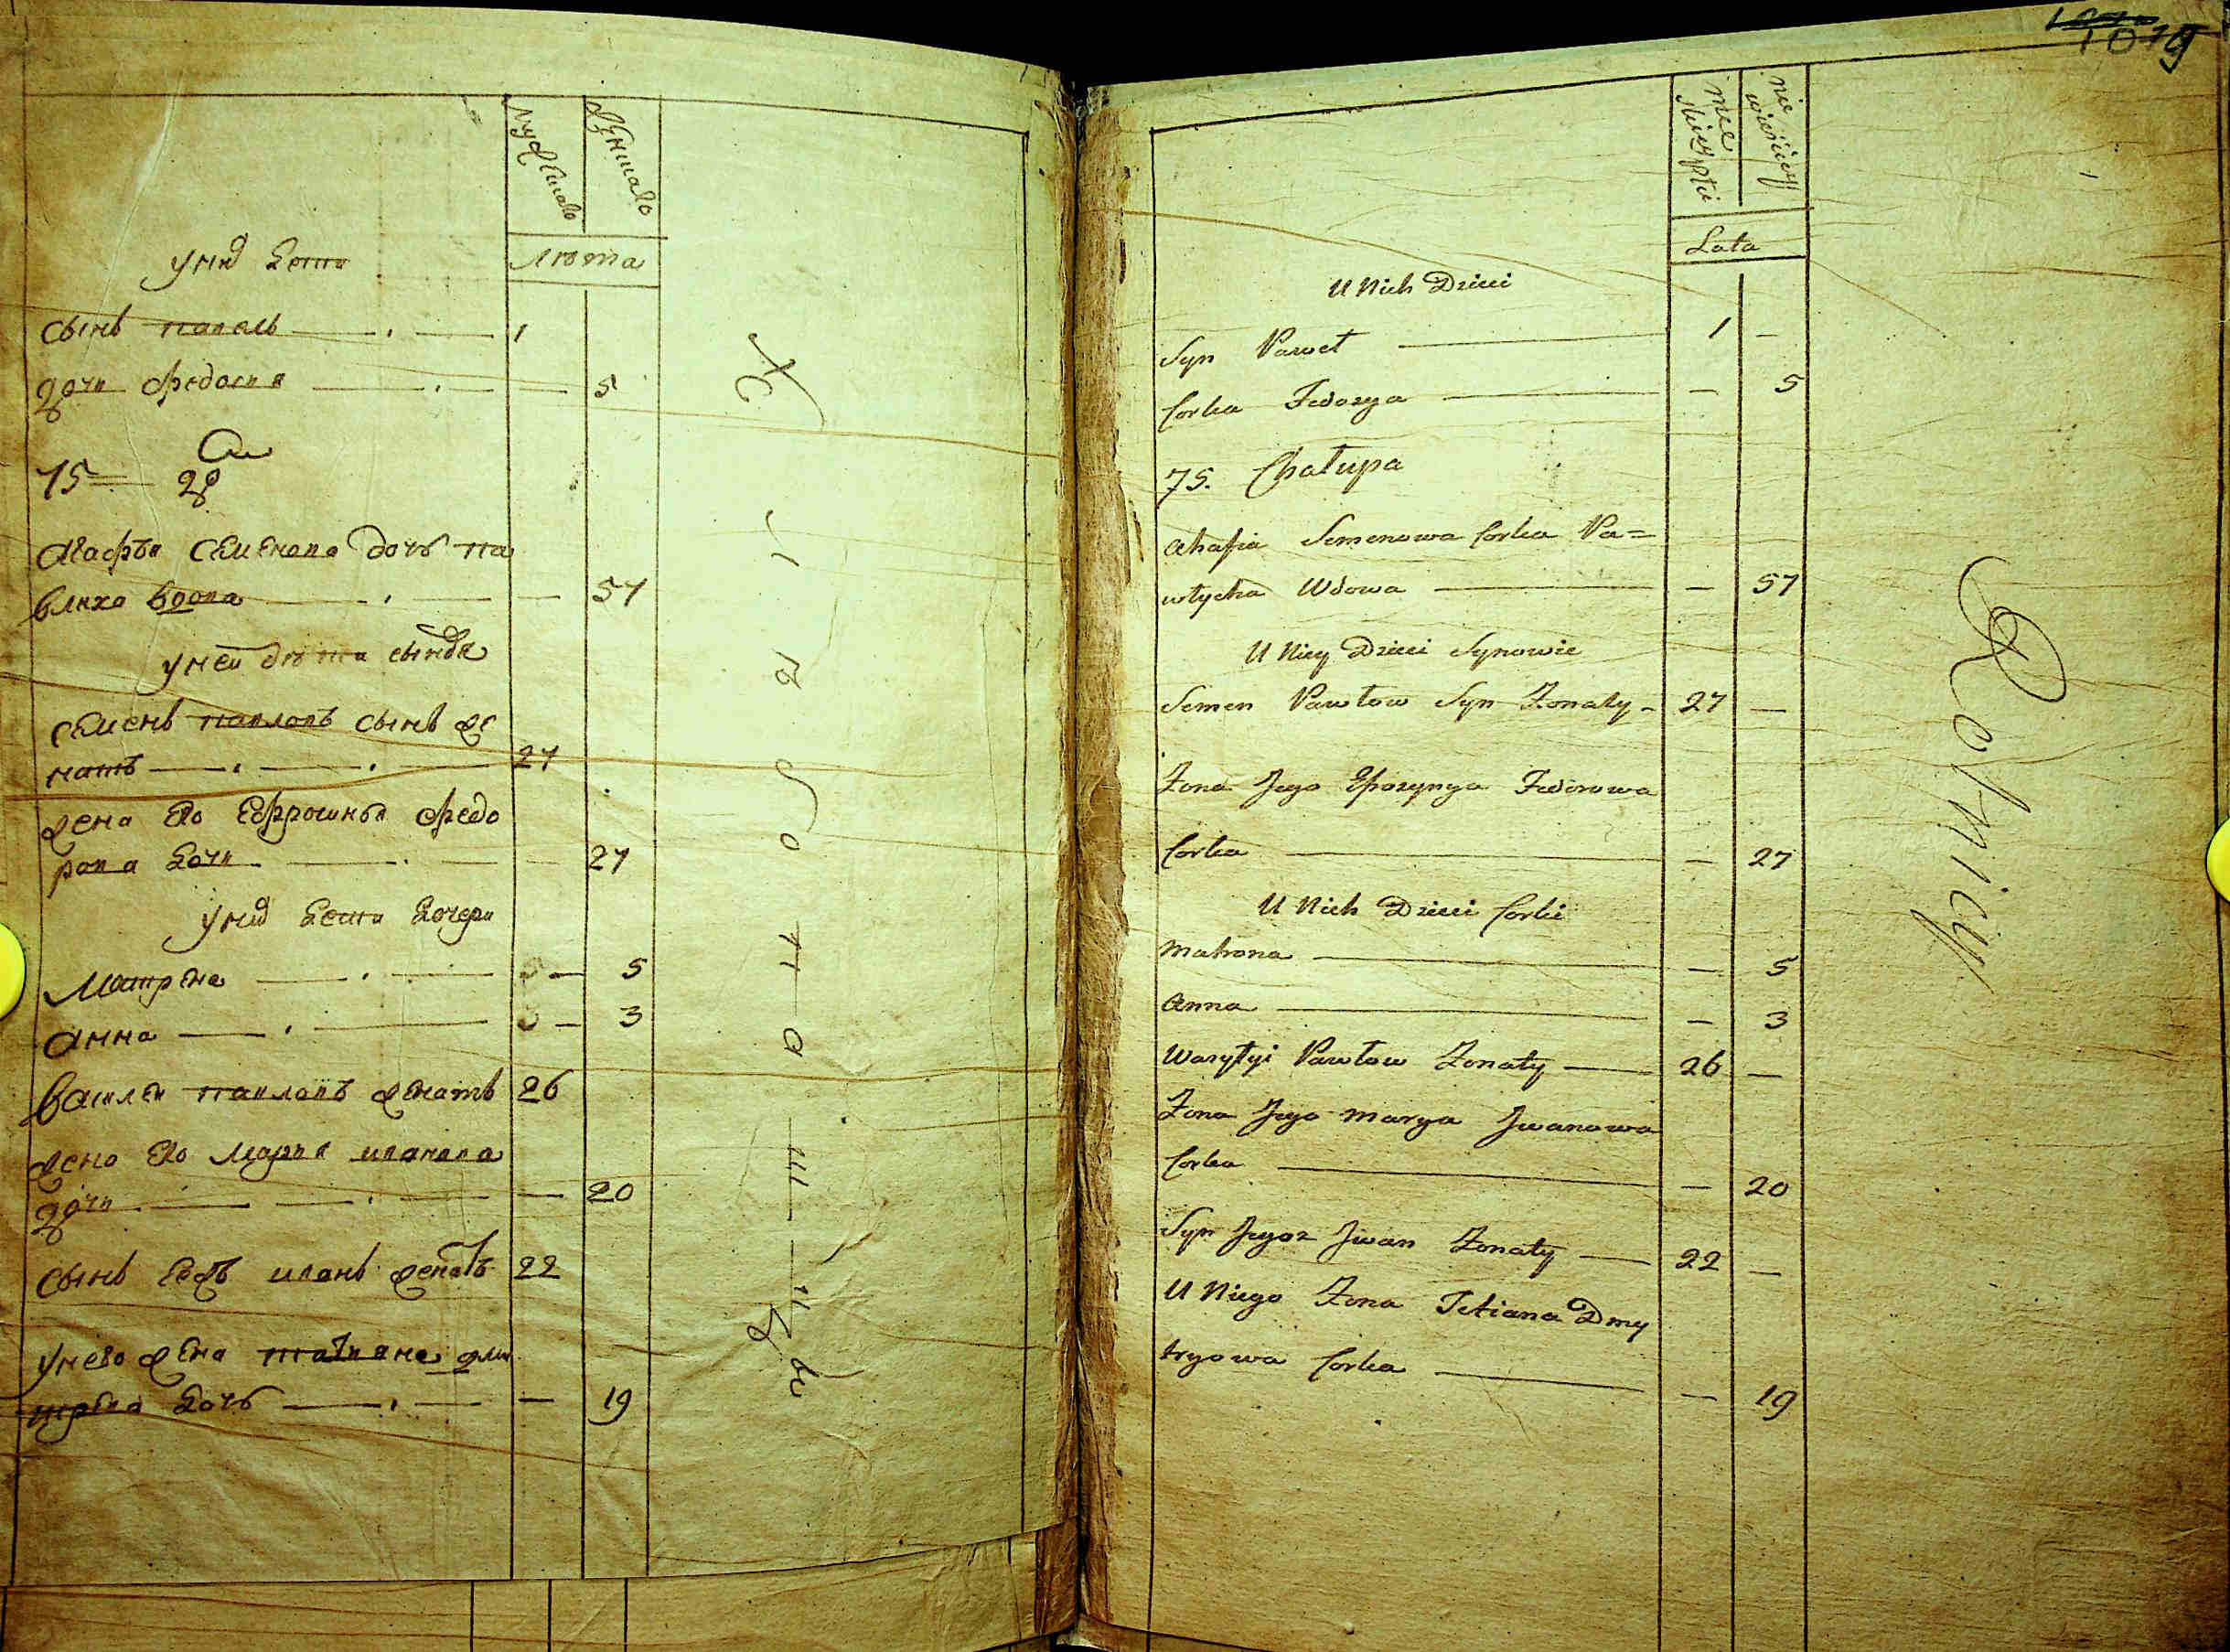 мужеско
женско
лѣта
у нихъ дети
сынъ павелъ — 1
дочи федосия — — 5
75 д
агафья семенова дочь па
влиха вдова — — 57
у ней дети сыновя
семенъ павловъ сынъ же
натъ — 27
жена его ефросинья федо
рова дочи — — 27
у нихъ дети дочери
матрена — — 5
анна — — 3
василеи павловъ женатъ 26
жена его мария иванова
дочи — — 20
сынъ еяжъ иванъ женатъ 22
у него жена татиана дми
трева дочь — — 19
Хлѣбопашцы
1019
męskiey płci
niewieściey
Lata
U Nich Dzieci
Syn Paweł — 1 —
Corka Fedosya — — 5
75. Chałupa
Ahafia Semenowa Corka Pa=
włycha Wdowa — — 57
U Niey Dzieci Synowie
Semen Pawłow Syn Żonaty - 27 —
Żona Jego Efrozynya Fedorowa
Corka — — 27
U Nich Dzieci Corki
Matrona — — 5
Anna — — 3
Wasylyi Pawłow Żonaty — 26 —
Żona Jego Marya Jwanowa
Corka — — 20
Syn Jeyoz Jwan Żonaty — 22 —
U Niego Żona Tetiana Dmy
tryowa Corka — — 19
Rolnicy